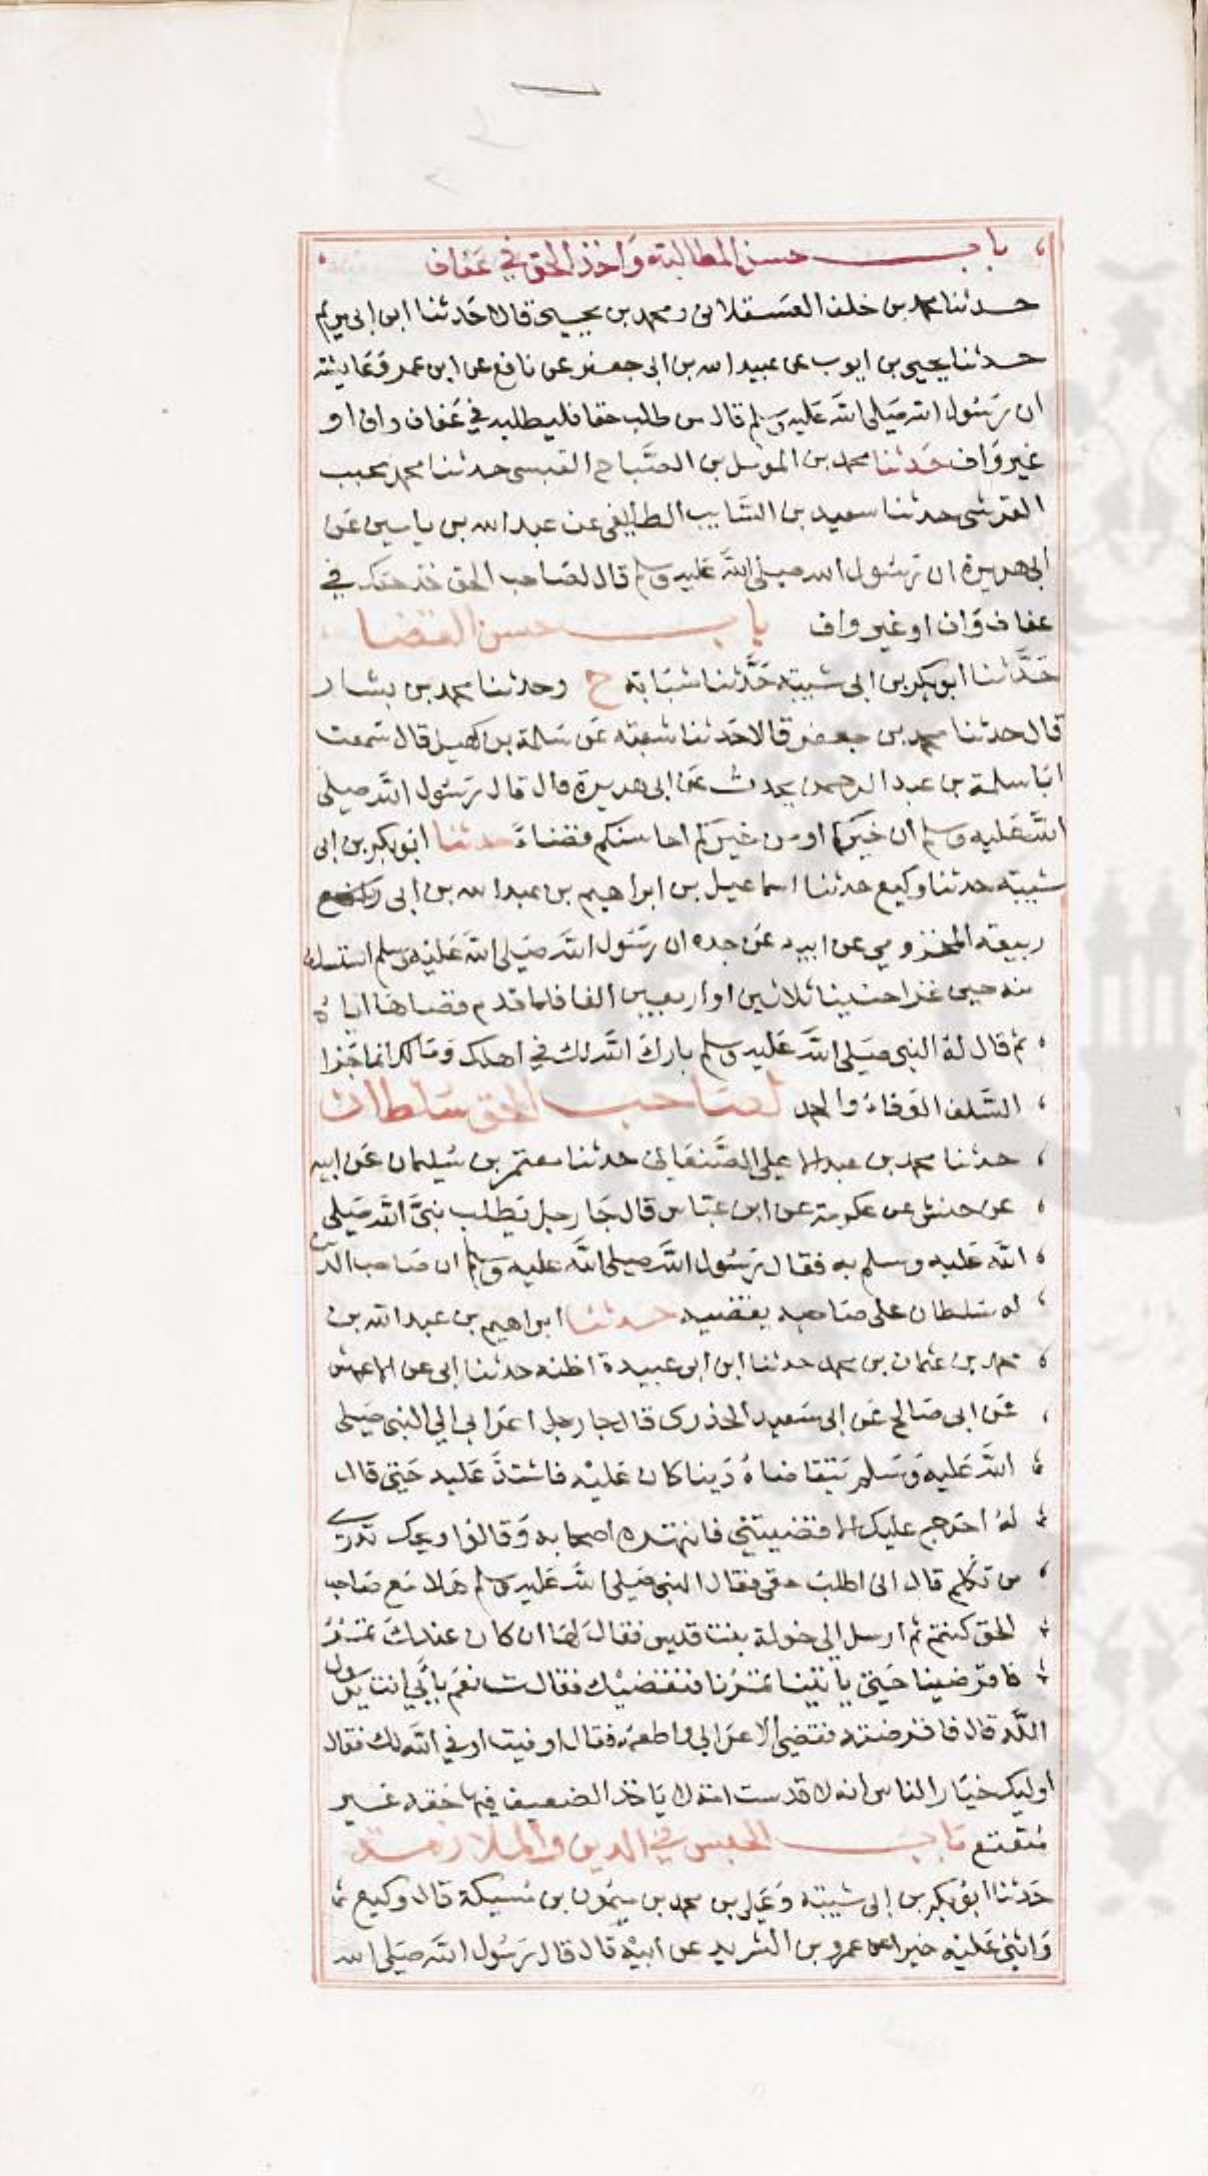 باب حسن المطالبة واخذ الحق في عفاف
حدثنا محمد بن خلف العسقلاني ومحمد بن يحيى قالا حدثنا ابن ابي مريم
حدثنا يحيى بن ايوب عن عبيد الله بن ابي جعفر عن نافع عن ابن عمر وعايشة
ان رسول الله صلى الله عليه وسلم قال من طلب حقا فليطلبه في عفاف واف او
غير واف حدثنا محمد بن المومل بن الصباح القيسي حدثنا محمد بن محبب
القرشي حدثنا سعيد بن السايب الطايفي عن عبد الله بن ياسين عن
ابي هريرة ان رسول الله صلى الله عليه وسلم قال لصاحب الحق خذ حقك في
عفاف واف او غير واف باب حسن القضا
حدثنا ابو بكر بن ابي شيبة حدثنا شبابة ح وحدثنا محمد بن بشار
قال حدثنا محمد بن جعفر قالا حدثنا شعبة عن سلمة بن كهيل قال سمعت
ابا سلمة بن عبد الرحمن يحدث عن ابي هريرة قال قال رسول الله صلى
الله عليه وسلم ان خيركم او من خيركم احاسنكم قضاء حدثنا ابو بكر بن ابي
شيبة حدثنا وكيع حدثنا اسماعيل بن ابراهيم بن عبد الله بن ابي
ربيعة المخزومي عن ابيه عن جده ان رسول الله صلى الله عليه وسلم استسلف
منه حين غزا حنينا ثلاثين او اربعين الفا فلما قدم قضاها اياه
ثم قال له النبي صلى الله عليه وسلم بارك الله لك في اهلك ومالك انما جزا
السلف الوفاء والحمد لصاحب الحق سلطان
حدثنا محمد بن عبد الاعلى الصنعاني حدثنا معتمر بن سليمان عن ابيه
عن حنش عن عكرمة عن ابن عباس قال جا رجل يطلب نبي الله صلى
الله عليه وسلم به فقال رسول الله صلى الله عليه وسلم ان صاحب الدين
له سلطان على صاحبه يقضيه حدثنا ابراهيم بن عبد الله بن
محمد بن عثمان بن محمد حدثنا ابن ابي عبيدة اظنه حدثنا ابي عن الاعمش
عن ابي صالح عن ابي سعيد الخذري قال جا رجل اعرابي الي النبي صلى
الله عليه وسلم يتقاضاه دينا كان عليه فاشتد عليه حتى قال
له احرج عليك الا قضيتني فانتهره اصحابه وقالوا ويحك تدري
من تكلم قال اني اطلب حقي فقال النبي صلى الله عليه وسلم هلا مع صاحب
الحق كنتم ثم ارسل الي خولة بنت قيس فقال لها ان كان عندك تمر
فاقرضينا حتى ياتينا تمرنا فنقضيك فقالت نعم بابي انت يرسول
الله قال فاقرضته فقضي الاعرابي واطعمه فقال اوفيت اوفي الله لك فقال
اوليك خيار الناس انه لا قدست امة لا ياخذ الضعيف فيها حقه غير
متعتع باب الحبس في الدين والملازمة
حدثنا ابو بكر بن ابي شيبة وعلي بن محمد بن ميمون بن مسيكة قال وكيع
واثنى عليه خيرا عن عمرو بن الشريد عن ابيه قال قال رسول الله صلى الله